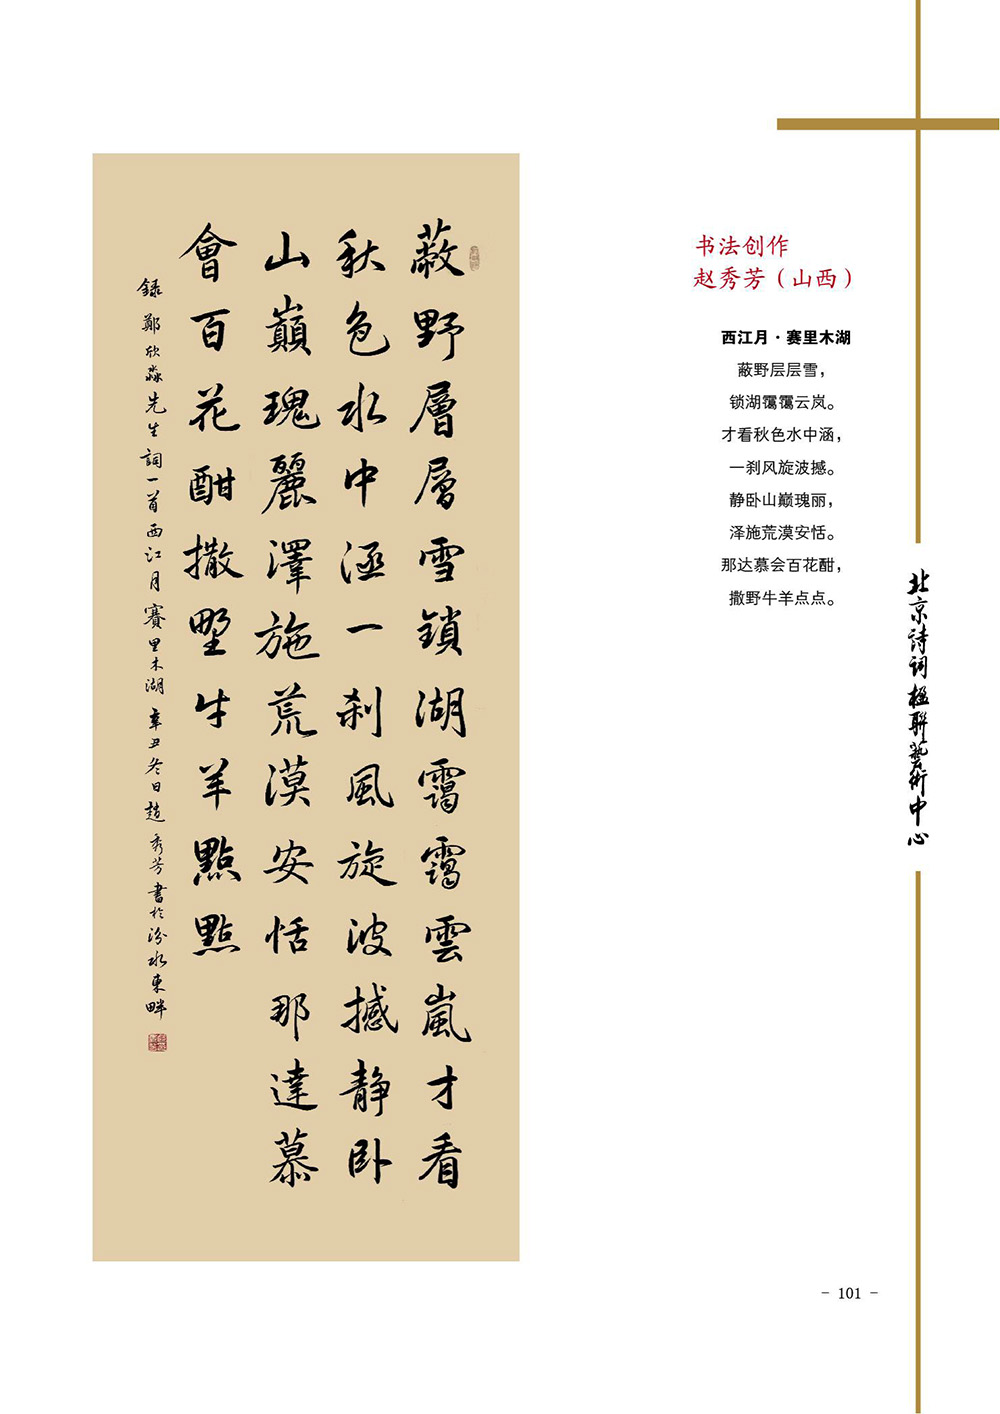 蔽野層層雪鎖湖靄靄雲嵐才看
秋色水中涵一刹風旋波撼静卧
山巔瑰麗澤施荒漠安恬那達慕
會百花酣撒野牛羊點點
録鄭欣淼先生詞一首西江月賽里木湖辛丑冬日趙秀芳書於汾水東畔
书法创作
赵秀芳（山西）
西江月·赛里木湖
蔽野层层雪，
锁湖霭霭云岚。
才看秋色水中涵，
一刹风旋波撼。
静卧山巅瑰丽，
泽施荒漠安恬。
那达慕会百花酣，
撒野牛羊点点。
北京诗词楹聯藝術中心
- 101 -